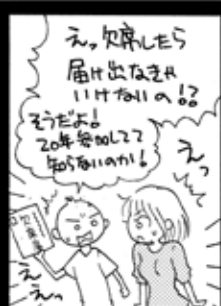 えっ欠席したら
届け出なきゃ
いけないの!?
そうだよ!
20年参加してて
知らないのか!
えっ
欠席届
えっ
えっ